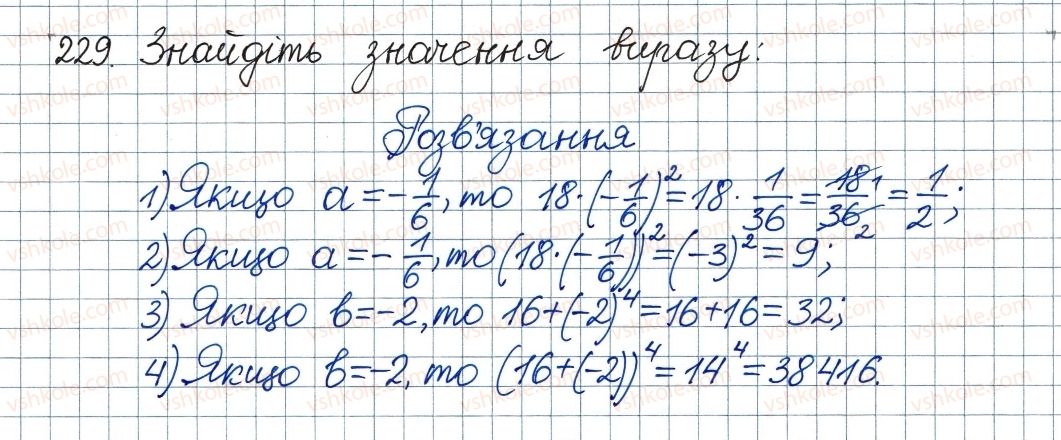 229. Знайдіть значення виразу:
Розв'язання
1) Якщо a = -1/6, то 18·(-1/6)² = 18·1/36 = 18 1/36 2 = 1/2;
2) Якщо a = -1/6, то (18·(-1/6))² = (-3)² = 9;
3) Якщо в = -2, то 16+(-2)⁴ = 16+16 = 32;
4) Якщо в = -2, то (16+(-2))⁴ = 14⁴ = 38 416.